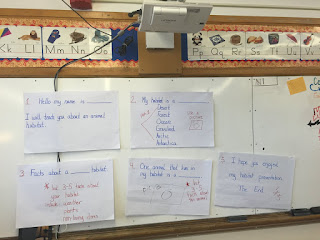 Kk Ll Mm Nn Oo
Pp Qq Rr Ss Tt Uu Vv
1. Hello my name is
I will teach you about an animal
habitat.
2. My habitat is a
Desert
Forest
Ocean
Grassland
Arctic
Antarctica
3. Facts about a habitat
* list 3-5 facts about
your habitat
weather
plants
non-living things
4. One animal that lives in
my habitat is a
5. I hope you enjoyed
my habitat presentation.
The End.